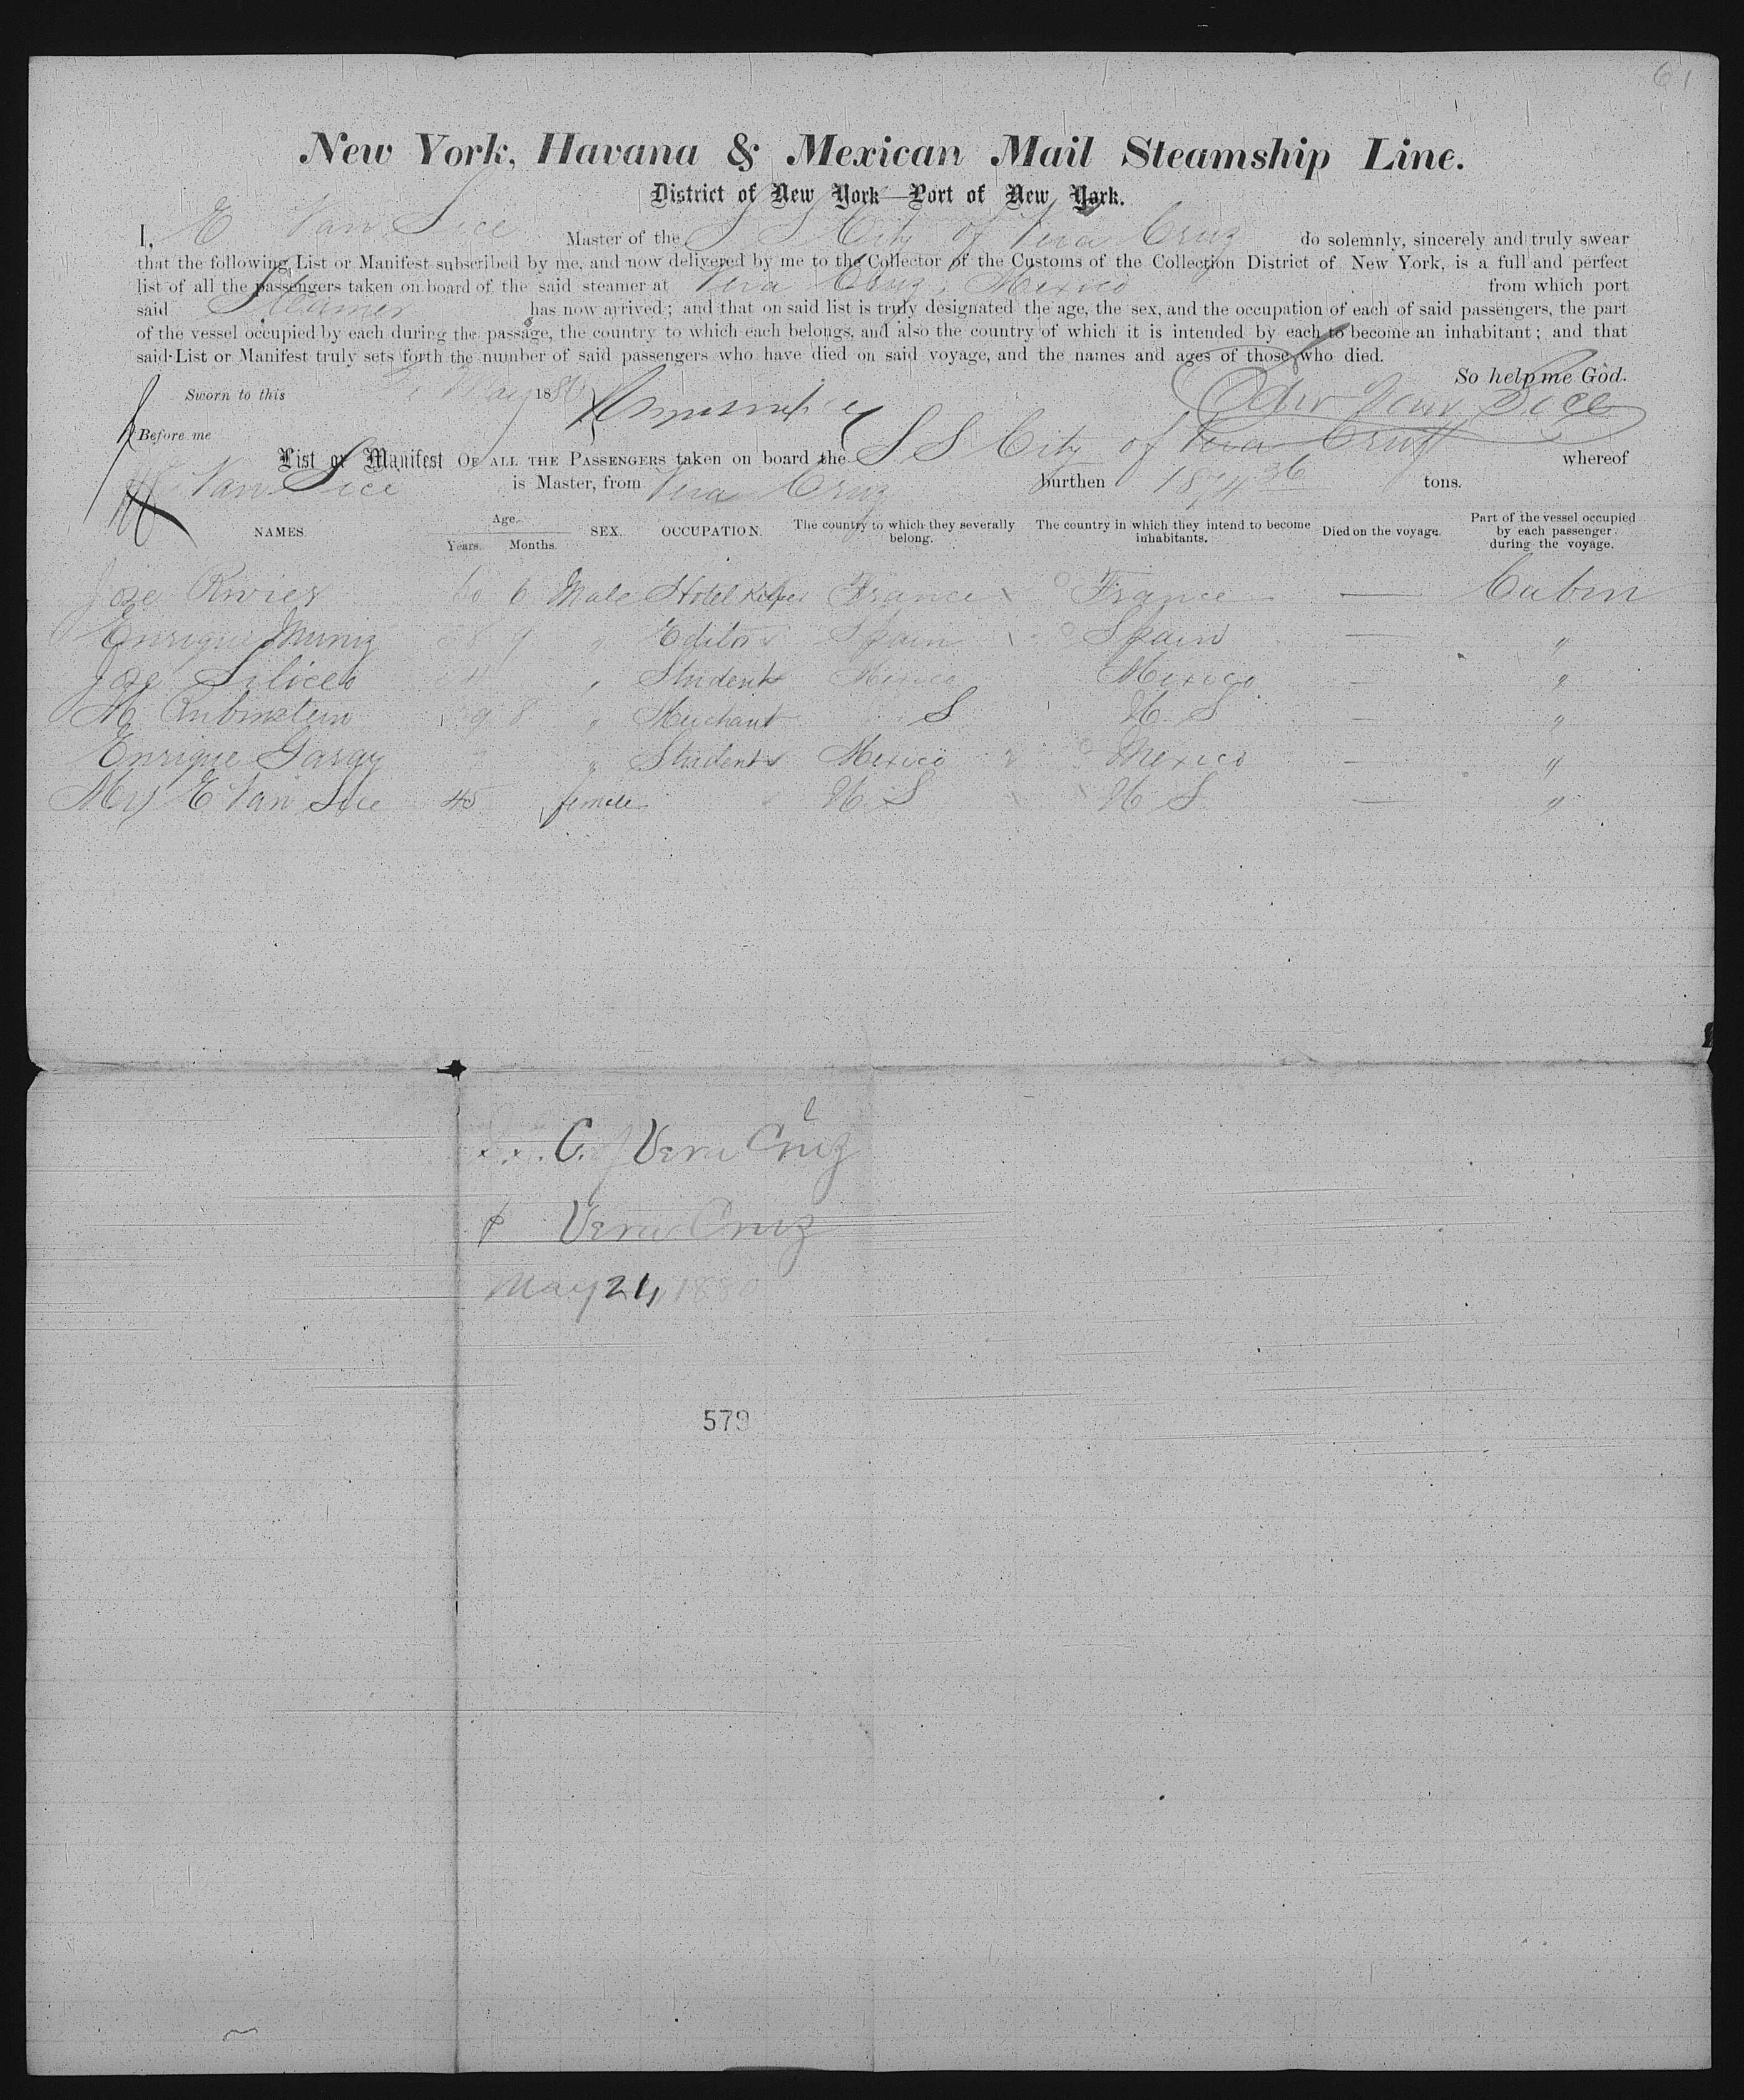 61
New York, Havana & Mexican Mail Steamship Line.
District of New York—Port of New York.
I, E Van Sice Master of the S S City of Vera Cruz do solemnly, sincerely and truly swear
that the following List or Manifest subscribed by me, and now delivered by me to the Collector of the Customs of the Collection District of New York, is a full and perfect
list of all the passengers taken on board of the said steamer at Vera Cruz, Mexico from which port
said Steamer has now arrived; and that on said list is truly designated the age, the sex, and the occupation of each of said passengers, the part
of the vessel occupied by each during the passage, the country to which each belongs, and also the country of which it is intended by each to become an inhabitant; and that
said List or Manifest truly sets forth the number of said passengers who have died on said voyage, and the names and ages of those who died.
So help me God.
Sworn to this May 1880 Edw Van Sice
Before me
List or Manifest OF ALL THE PASSENGERS taken on board the S S City of Vera Cruz whereof
Van Sice is Master, from Vera Cruz burthen 1874 36 tons.
NAMES. Age. Years. Months. SEX. OCCUPATION. The country to which they severally belong. The country in which they intend to become inhabitants. Died on the voyage. Part of the vessel occupied by each passenger during the voyage.
Jose Rivier 60 6 Male Hotel Keeper France France — Cabin
Enrique Muniz 9 " Editor Spain Spain — "
Jose Siliceo " Student Mexico Mexico — "
M Rubinstein 8 " Merchant S U S — "
Enrique Garay " Student Mexico Mexico — "
Mrs E Van Sice 45 female U S U S — "
C. of Vera Cruz
Vera Cruz
May 24, 1880
579